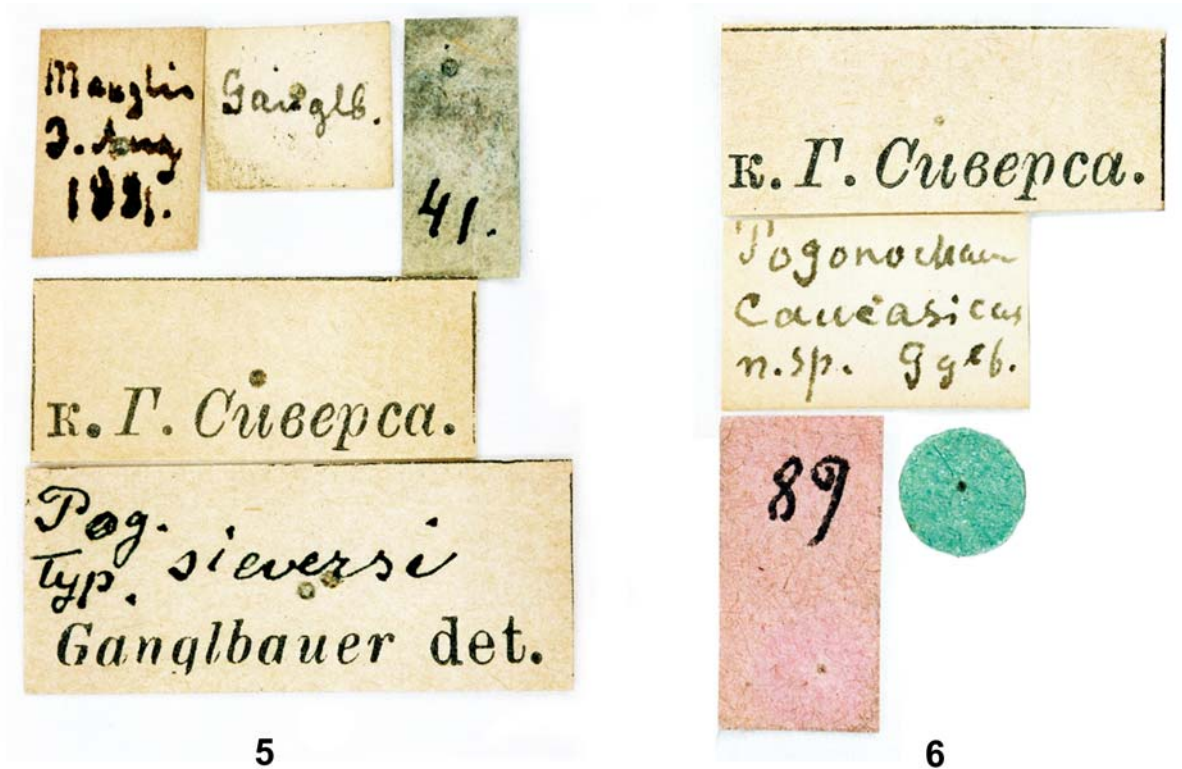 Manglis
3. Aug
1881.
Ganglb.
41.
к. Г. Сиверса.
Pog.
Typ. sieversi
Ganglbauer det.
5
к. Г. Сиверса.
Pogonochaer
Caucasicus
n. sp. Gglb.
89
6